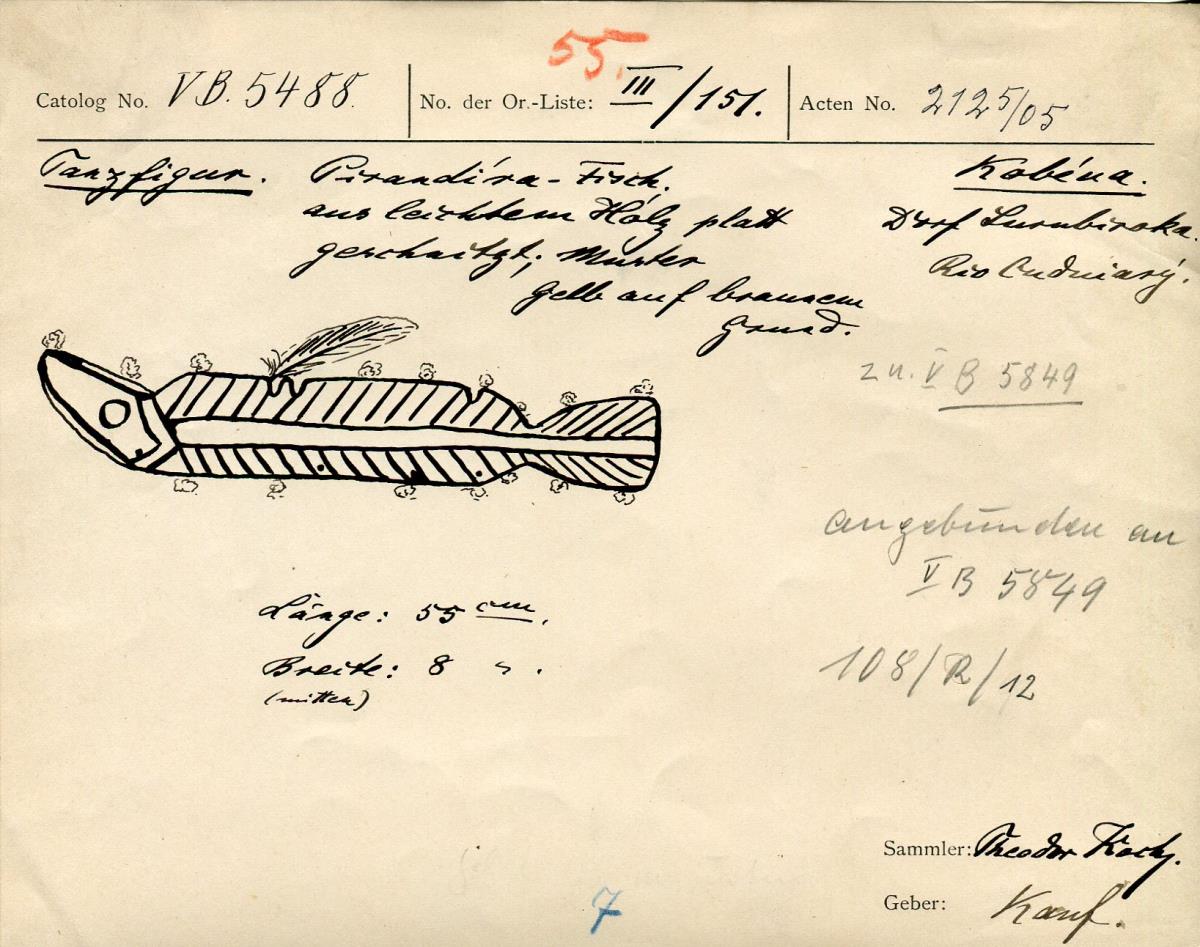 55.
Catolog No. V B. 5488. No. der Or.-Liste: III/151. Acten No. 2125/05
Tanzfigur. Pirandíra-Fisch, Kobéua.
aus leichtem Holz platt Dorf
geschnitzt; Muster Rio Cuduiarý.
gelb auf braunem
Grund.
zu. V B 5849
angebunden an
V B 5849
Länge: 55 cm.
Breite: 8 " .
(mitten)
108/R/12
Sammler: Theodor Koch.
Geber: Kauf.
7